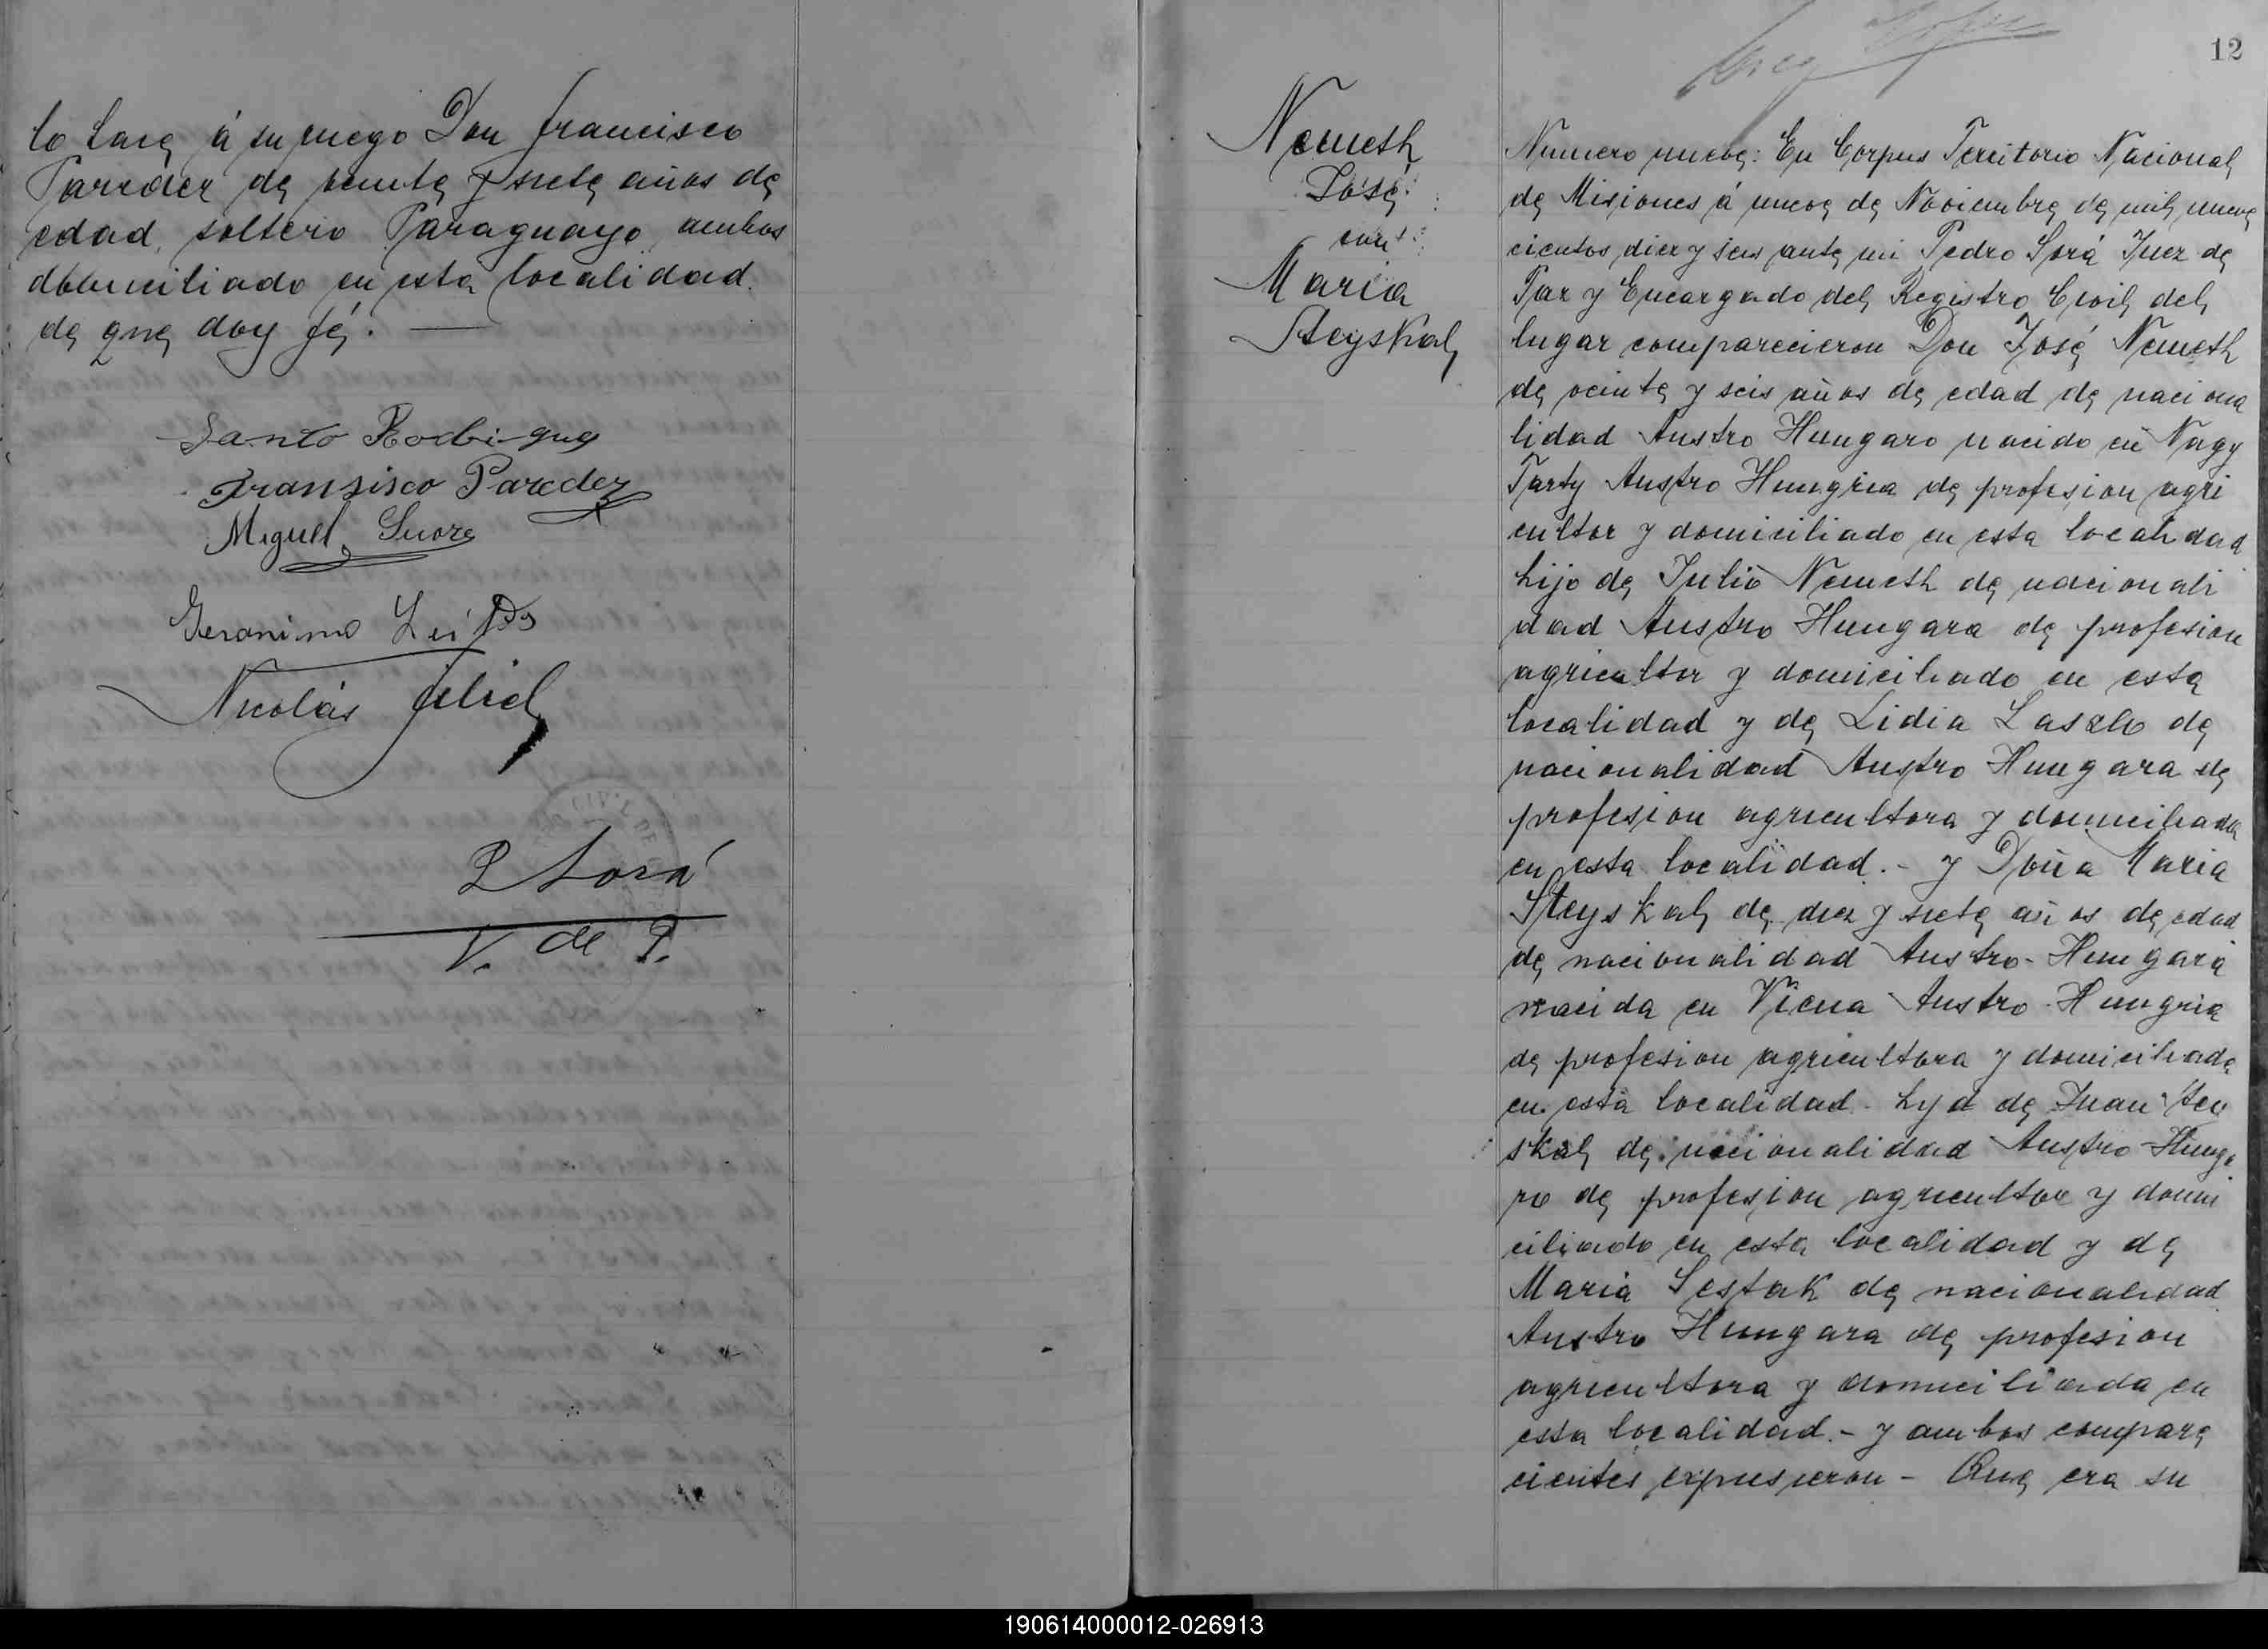 lo hace á su ruego Don Francisco
Paredez de veinte y siete años de
edad, soltero Paraguayo, ambos
domiciliado en esta localidad.
de que doy fé. —
Santo Rodrigue
Fransisco Paredez
Miguel
Geronimo
Nicolás
P Sorá
V. de P.
12
Nemeth
José
con
Maria
Steyskal
Numero nueve: En Corpus Territorio Nacional
de Misiones á nueve de Noviembre de mil nueve
cientos diez y seis ante mi Pedro Sorá Juez de
Paz y Encargado del Registro Civil del
lugar comparecieron Don José Nemeth
de veinte y seis años de edad de naciona
lidad Austro Hungaro nacido en Nagy
Austro Hungria de profesion agri
cultor y domiciliado en esta localidad
hijo de Julio Nemeth de nacionali
dad Austro Hungara de profesion
agricultor y domiciliado en esta
localidad y de Lidia Laszlo de
nacionalidad Austro Hungara de
profesion agricultora y domiciliada
en esta localidad. - y Doña Maria
Steyskal de diez y siete años de edad
de nacionalidad Austro-Hungara
nacida en Viena Austro-Hungria
de profesion agricultora y domiciliada
en esta localidad - hija de Juan Stey
skal de nacionalidad Austro-Hunga
ro de profesion agricultor y domi
ciliado en esta localidad y de
Maria Sestak de nacionalidad
Austro Hungara de profesion
agricultora y domiciliada en
esta localidad. - y ambos compare
cientes expusieron - Que era su
190614000012-026913